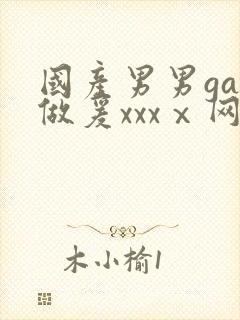 國產男男ga
做爰xxxⅹ网
木小榆1